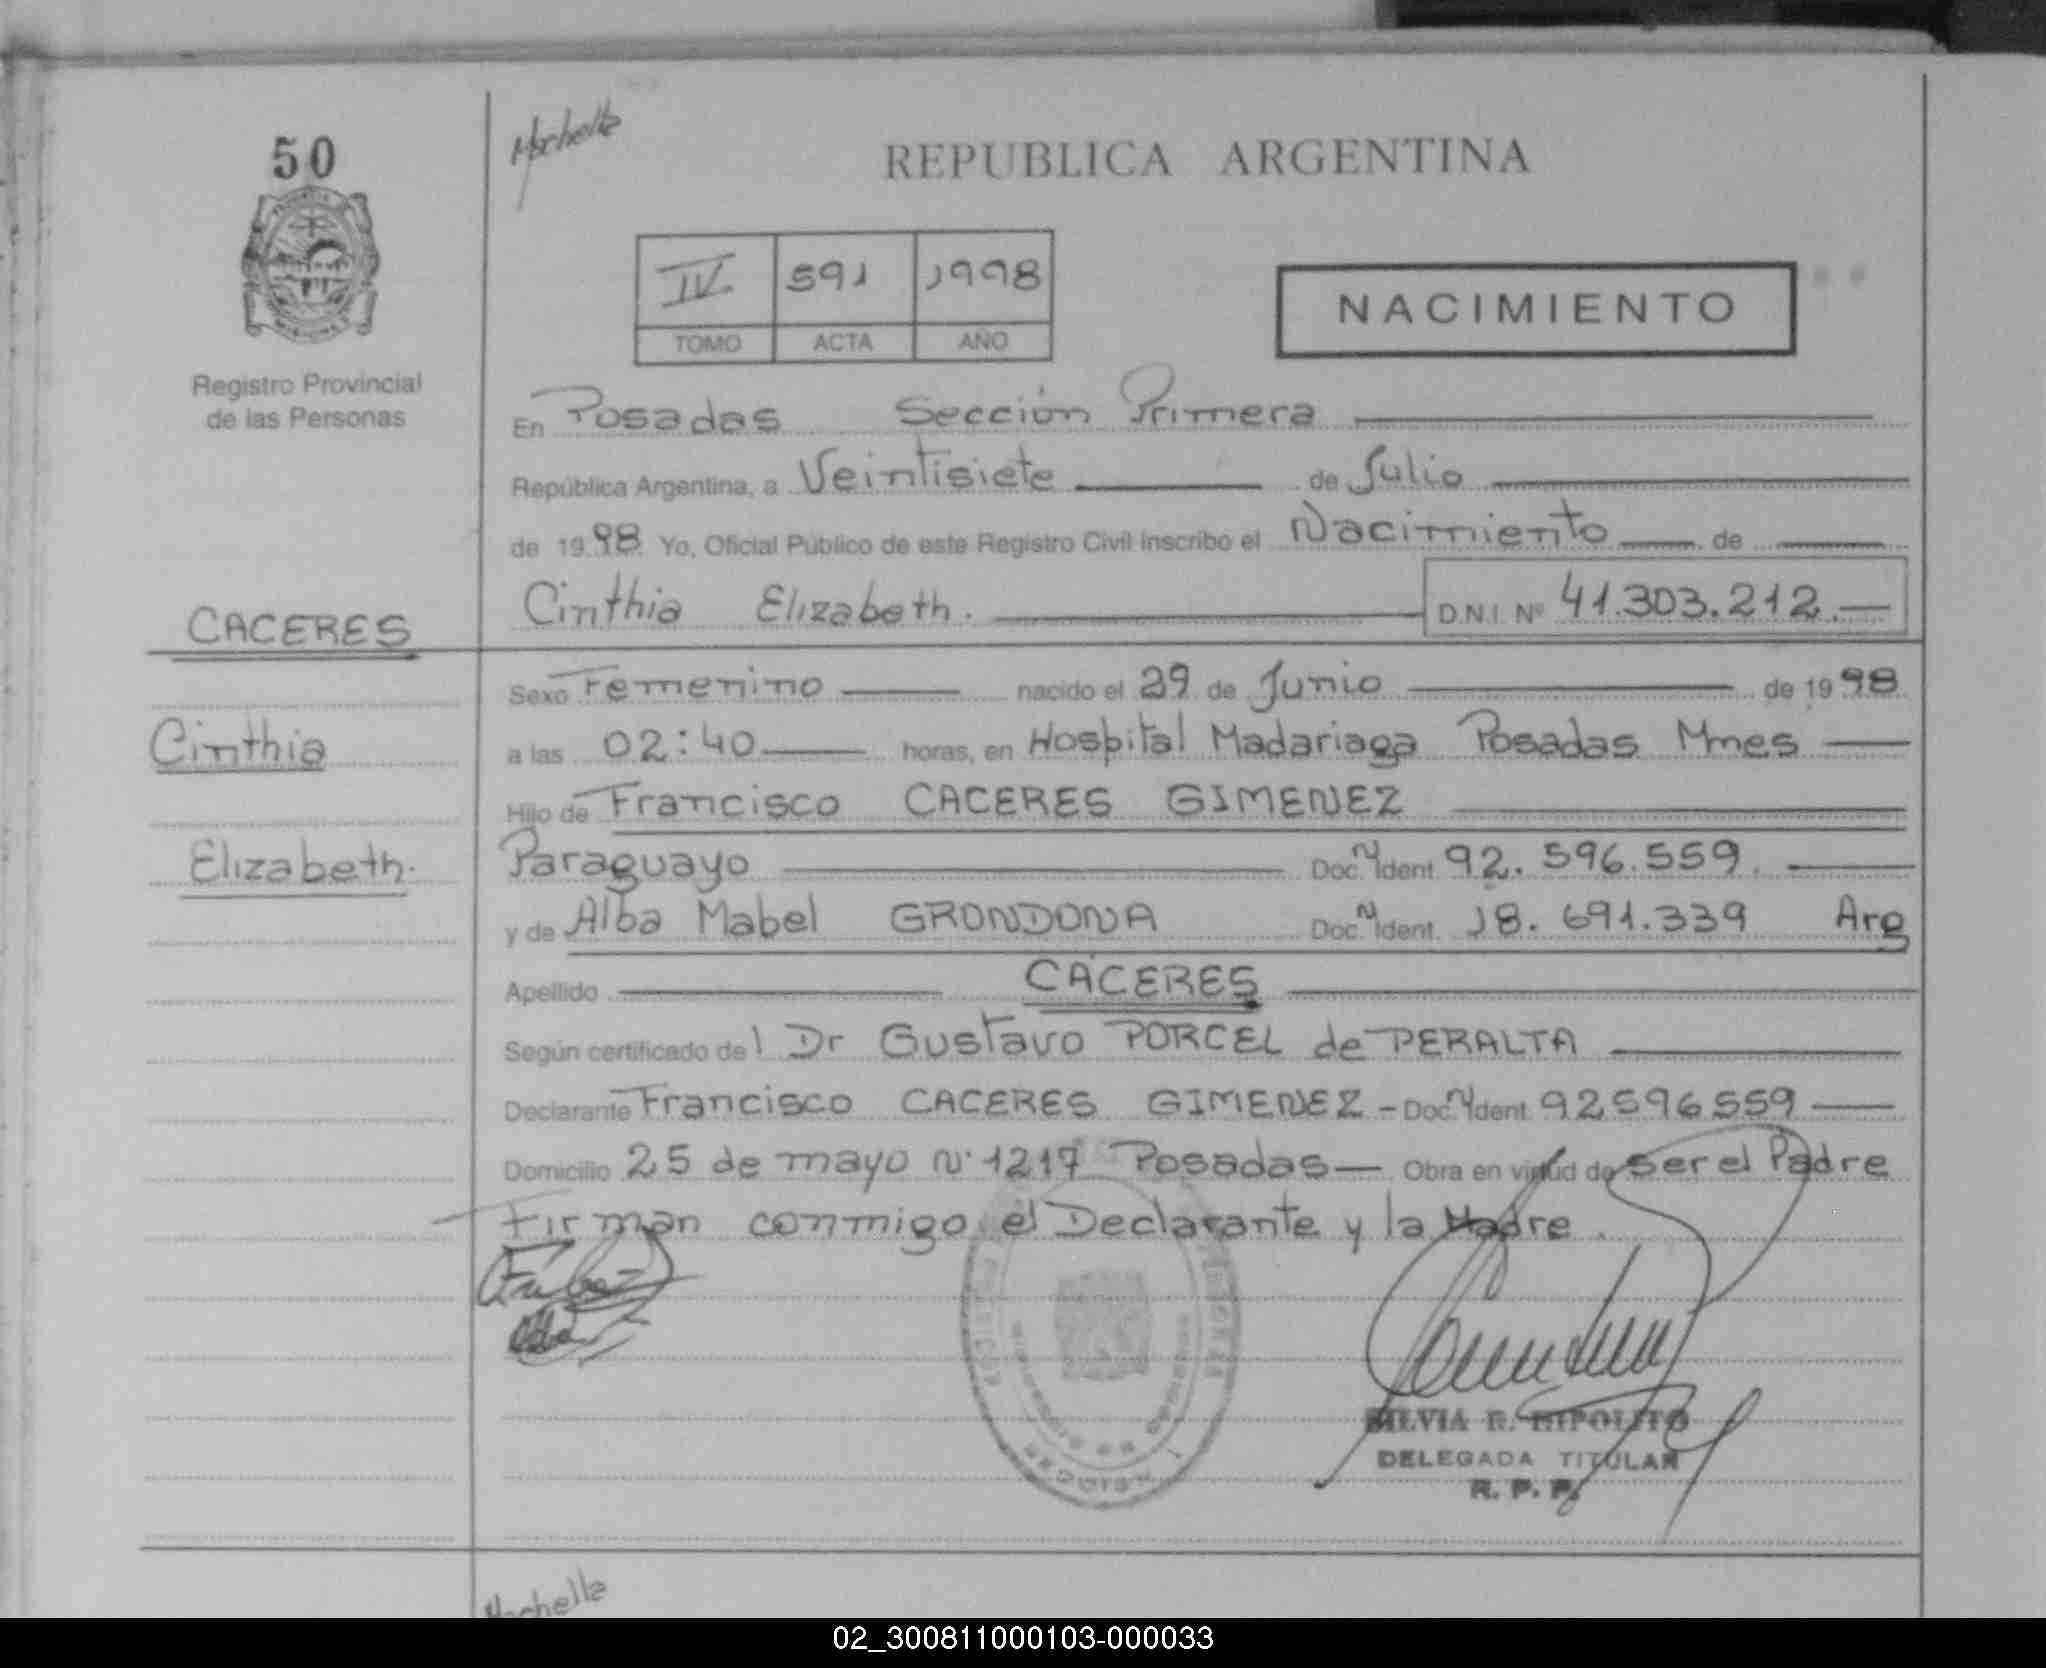 50
Registro Provincial
de las Personas
CACERES
Cinthia
Elizabeth.
REPUBLICA ARGENTINA
IV 591 1998
TOMO ACTA AÑO
NACIMIENTO
En Posadas Sección Primera
República Argentina, a Veintisiete de Julio
de 1998 Yo, Oficial Público de este Registro Civil inscribo el Nacimiento de
Cinthia Elizabeth. D.N.I. Nº 41.303.212.
Sexo Femenino nacido el 29 de Junio de 1998
a las 02:40 horas, en Hospital Madariaga Posadas Mnes
Hijo de Francisco CACERES GIMENEZ
Paraguayo Doc. Ident. 92.596.559.
y de Alba Mabel GRONDONA Doc. Ident. 18.691.339 Arg
Apellido CACERES
Según certificado del Dr Gustavo PORCEL de PERALTA
Declarante Francisco CACERES GIMENEZ - Doc. Ident. 92596559
Domicilio 25 de mayo Nº 1217 Posadas — Obra en virtud de ser el Padre
Firman conmigo el Declarante y la Madre.
SILVIA R. HIPOLITO
DELEGADA TITULAR
R. P. P.
02_300811000103-000033